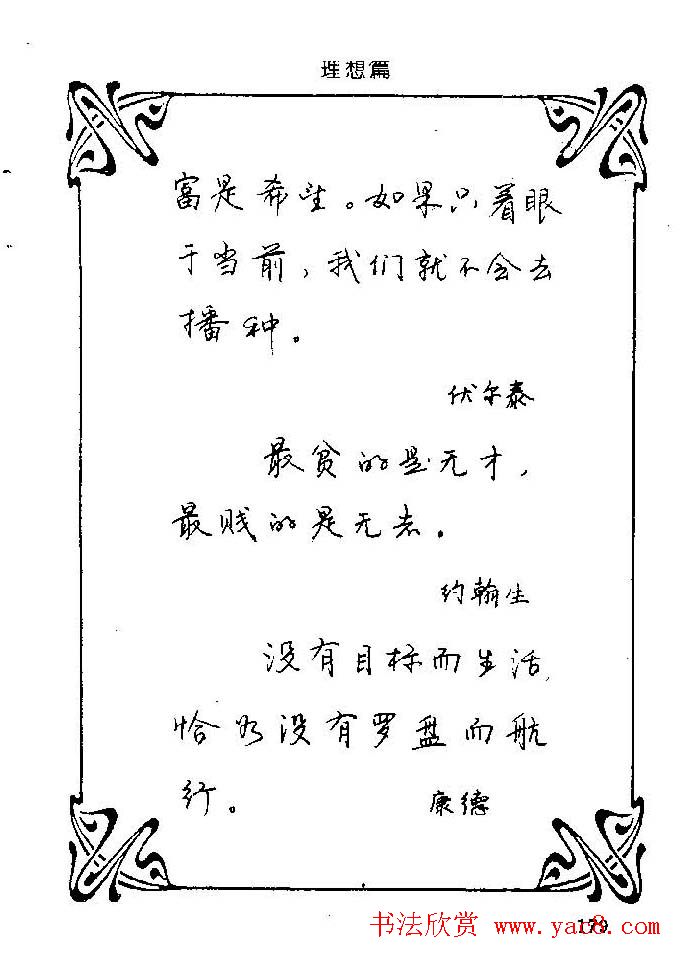 理想篇
富是希望。如果只着眼
于当前，我们就不会去
播种。
伏尔泰
最贫的是无才，
最贱的是无志。
约翰生
没有目标而生活，
恰如没有罗盘而航
行。 康德
179
书法欣赏 www.yac8.com